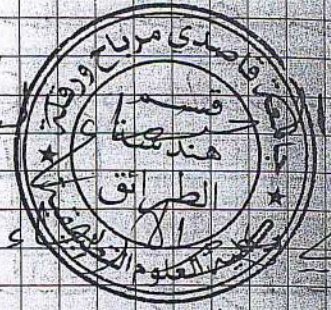 جامعة قاصدي مرباح ورقلة
قسم
هندسة
الطرائق
كلية العلوم التطبيقية